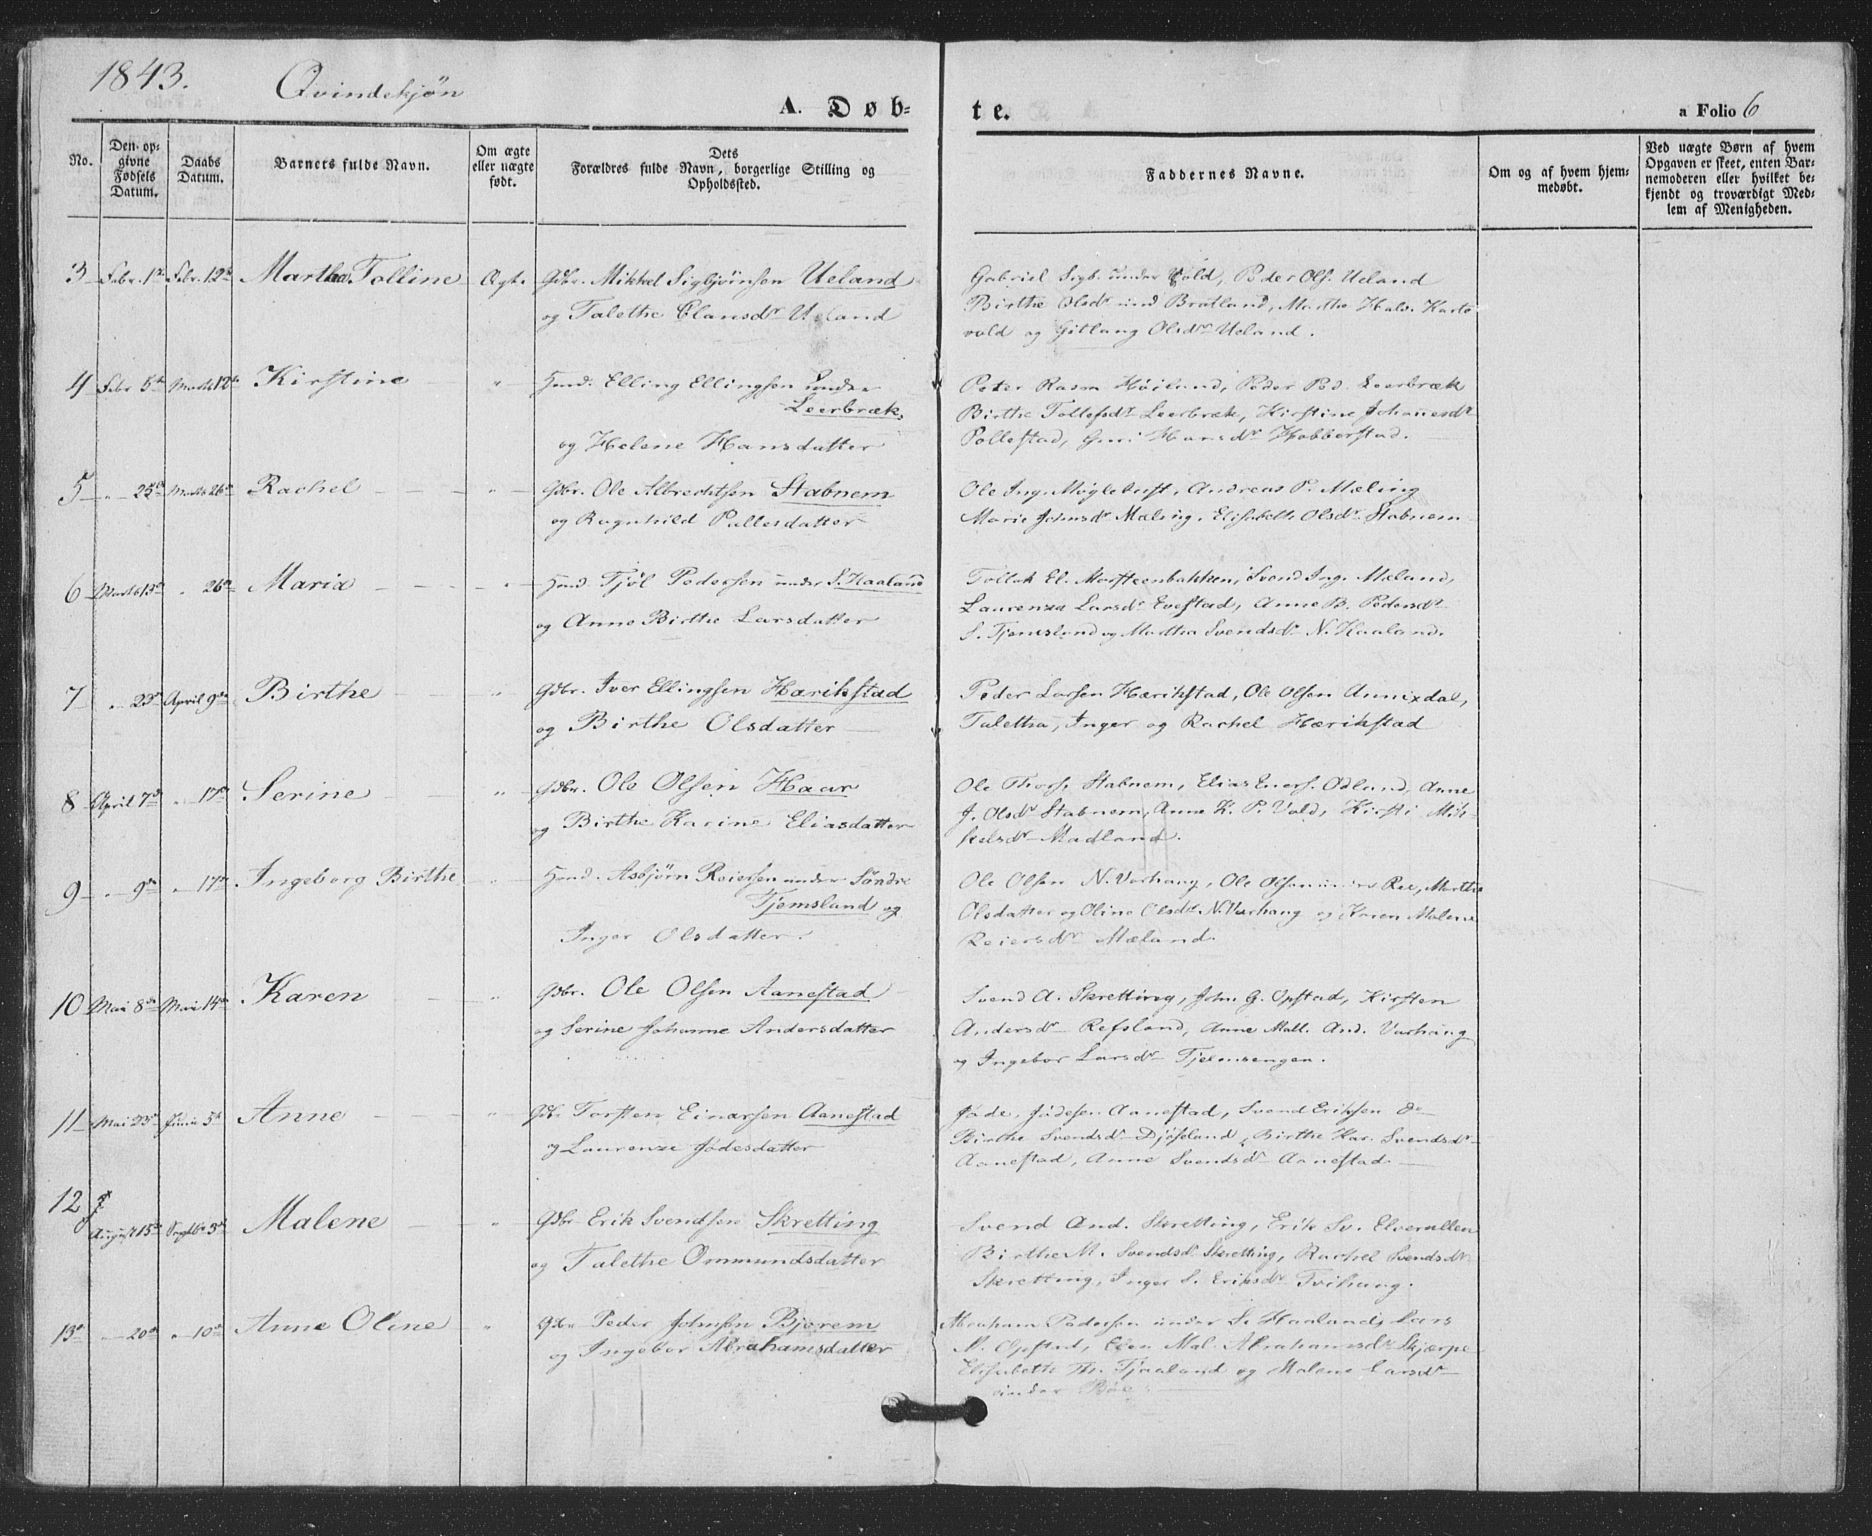 1843. Qvindekjön
A. Døb-
te.
a Folio 6
No.
Den opgivne Fødsels Datum.
Daabs Datum.
Barnets fulde Navn.
Om ægte eller uægte født.
Dets Forældres fulde Navn, borgerlige Stilling og Opholdssted.
Faddernes Navne.
Om og af hvem hjemmedøbt.
Ved uægte Børn af hvem Opgaven er skeet, enten Barnemoderen eller hvilket bekjendt og troværdigt Medlem af Menigheden.
3 Febr. 1ste Febr. 12te Martha Tolline Ægte Gdbr. Mikkel Sigbjörnsen Ueland
og Talethe Clausdr Ueland
Gabriel Sigb. under Vold, Peder Ols. Ueland
Birthe Olsdr und Bratland, Martha Halv.
vold og Gitlaug Olsdr Ueland.
4 Febr 5te Marts 12te Kirstine " Huusd. Elling Ellingsen under
Leerbræk,
og Helene Hansdatter
Peter Rasm Höiland, Peder Ped. Leerbræk
Birthe Tollefsdr Leerbræk, Kirstine Johanesdr
Pollestad, Guri Hansdr Hobberstad.
5 " 25de Marts 26de Rachel " Gdbr. Ole Albrechtsen Stabnem
og Ragnhild Pallesdatter
Ole Ing. Mögletuft, Andreas P. Mæling
Marie Johnsdr Mæling, Elisabeth Olsdr Stabnem
6 Marts 13de " 26de Maria " Huusd Tjöl Pedersen under S. Haaland
og Anne Birthe Larsdatter
Tollak El. Morsteenbakken, Svend Ing. Mæland,
Laurenza Larsdr Evestad, Anne B. Pedersdr
S. Tjemsland og Martha Svendsdr N. Haaland.
7 " 23de April 9de Birthe " Gdbr. Iver Ellingsen Harikstad
og Birthe Olsdatter
Peder Larsen Hærikstad, Ole Olsen Annixdal,
Taletha, Inger og Rachel Hærikstad
8 April 7de " 17de Serine " Gdbr. Ole Olsen Haar
og Birthe Karine Eliasdatter
Ole Thors. Stabnem, Elias Eners. Odland, Anne
J. Olsdr Stabnem, Anne K. P. Vold, Kirsti Mik-
kelsdr Madland.
9 " 9de " 17de Ingeborg Birthe " Huusd. Asbjörn Reiersen under Söndre
Tjemsland og
Inger Olsdatter.
Ole Olsen N. Varhaug, Ole Olsen under Ree, Martha
Olsdatter og Oline Olsdr N. Varhaug og Karen Malene
Reiersdr Mæland.
10 Mai 8de Mai 14de Karen " Gdbr. Ole Olsen Aanestad
og Serine Johanne Andersdatter
Svend A. Skretting, John G. Opstad, Kirsten
Andersdr Refsland, Anne Mall. And. Varhaug
og Ingebor Larsdr Tjemsengen.
11 Mai 23de Junii 5te Anne " Gdb. Torsten Einarsen Aanestad
og Laurenze Jödesdatter
Jöde Jödesen Aanestad, Svend Eriksen do
Birthe Svendsdr Djöseland, Birthe Kar. Svendsdr
Aanestad, Anne Svendsdr Aanestad
12 August 15de Septbr 3de Malene " Gdbr Erik Svendsen Skretting
og Talethe Ommundsdatter
Svend And. Skretting, Erik Sv. Elverallen
Birthe M. Svendsdr Skretting, Rachel Svendsdr
Skretting, Inger S. Eriksdr Tvihaug.
13 " 20de " 10de Anne Oline " Gdbr Peder Johnsen Bjorem
og Ingebor Abrahamsdatter
Abraham Pedersen under S. Haaland, Lars
Opstad, Elen Mal. Abrahamsdr Skjærpe
Elisabeth Th. Tjaaland og Malene Larsdr
under Böe